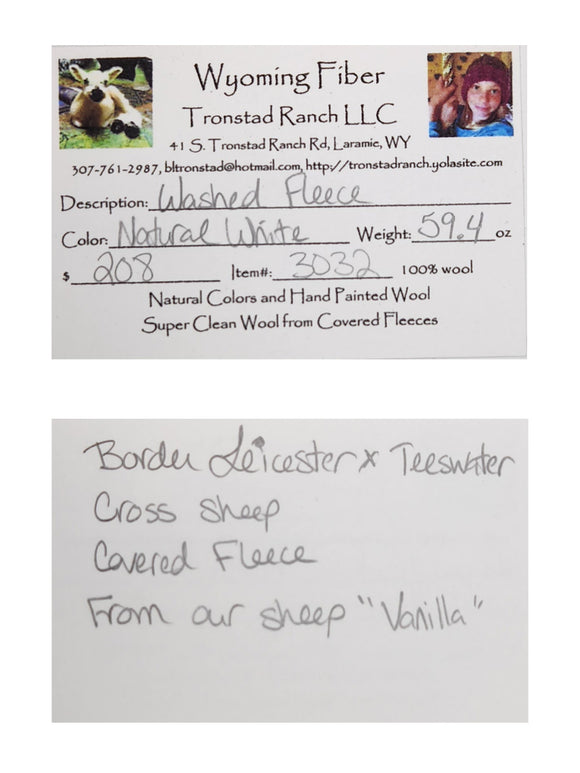 Wyoming Fiber
Tronstad Ranch LLC
41 S. Tronstad Ranch Rd, Laramie, WY
307-761-2987, bltronstad@hotmail.com, http://tronstadranch.yolasite.com
Description: Washed Fleece
Color: Natural White Weight: 59.4 oz
$ 208 Item#: 3032 100% wool
Natural Colors and Hand Painted Wool
Super Clean Wool from Covered Fleeces
Border Leicester x Teeswater
Cross sheep
Covered Fleece
From our sheep "Vanilla"